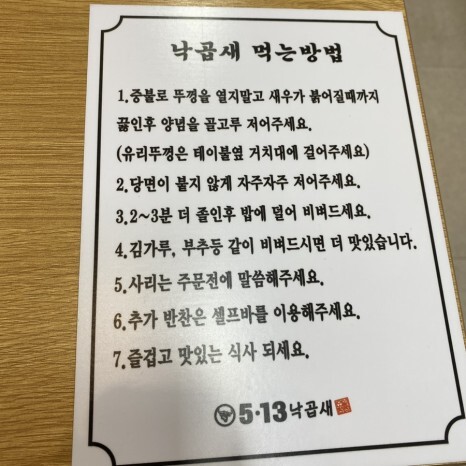 낙곱새 먹는방법
1.중불로 뚜껑을 열지말고 새우가 붉어질때까지
끓인후 양념을 골고루 저어주세요.
(유리뚜껑은 테이블옆 거치대에 걸어주세요)
2.당면이 불지 않게 자주자주 저어주세요.
3.2~3분 더 졸인후 밥에 덜어 비벼드세요.
4.김가루, 부추등 같이 비벼드시면 더 맛있습니다.
5.사리는 주문전에 말씀해주세요.
6.추가 반찬은 셀프바를 이용해주세요.
7.즐겁고 맛있는 식사 되세요.
5·13낙곱새